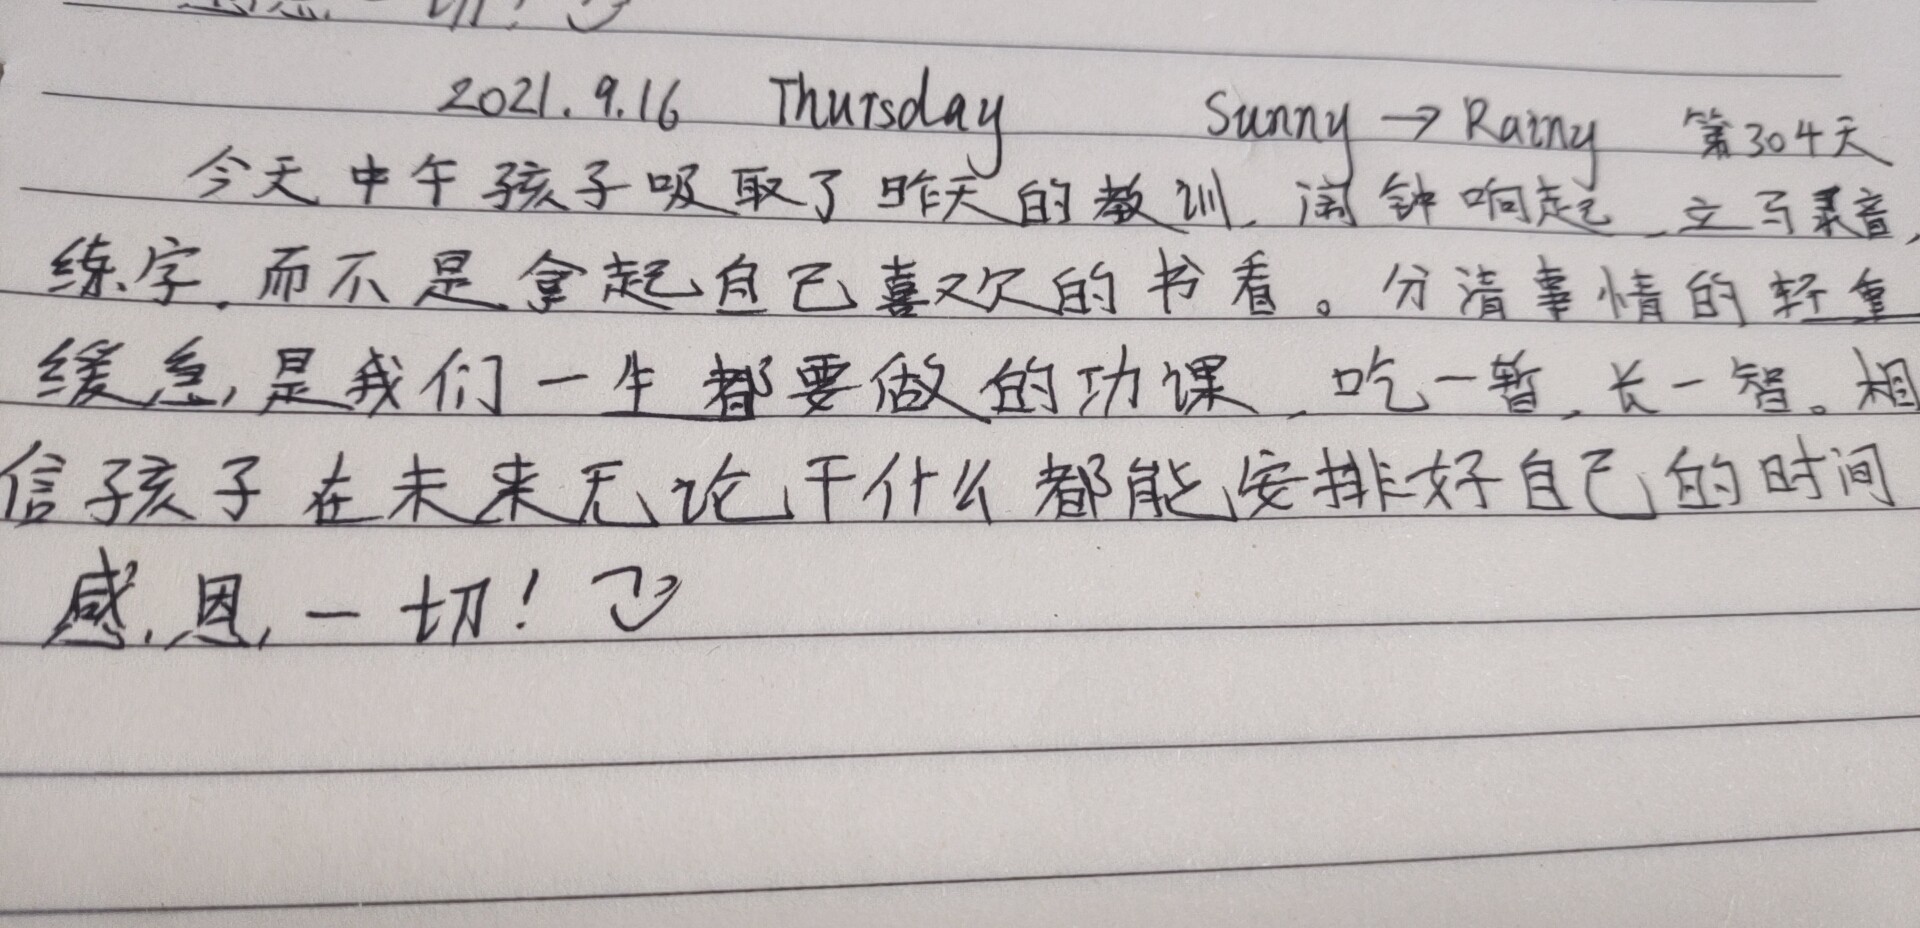 2021.9.16 Thursday Sunny → Rainy 第304天
今天中午孩子吸取了昨天的教训,闹钟响起,立马录音,
练字,而不是拿起自己喜欢的书看。分清事情的轻重
缓急,是我们一生都要做的功课,吃一暂,长一智。相
信孩子在未来无论干什么都能安排好自己的时间
感恩一切!